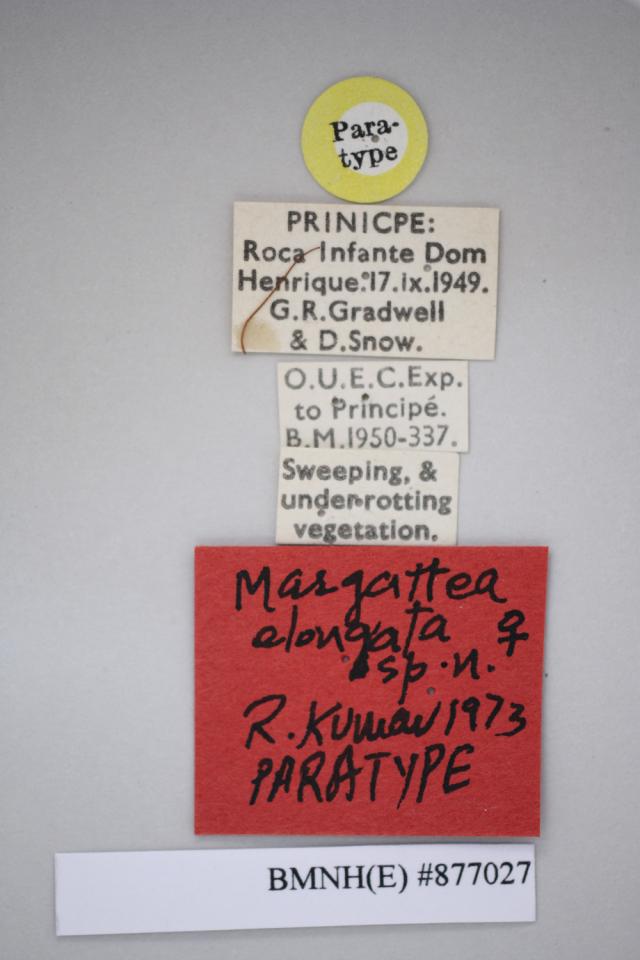 Para-
type
PRINICPE:
Roca Infante Dom
Henrique. 17.ix.1949.
G.R.Gradwell
& D.Snow.
O.U.E.C.Exp.
to Principé.
B.M.1950-337.
Sweeping, &
under rotting
vegetation.
Margattea
elongata ♀
sp.n.
R.Kumar 1973
PARATYPE
BMNH(E) #877027